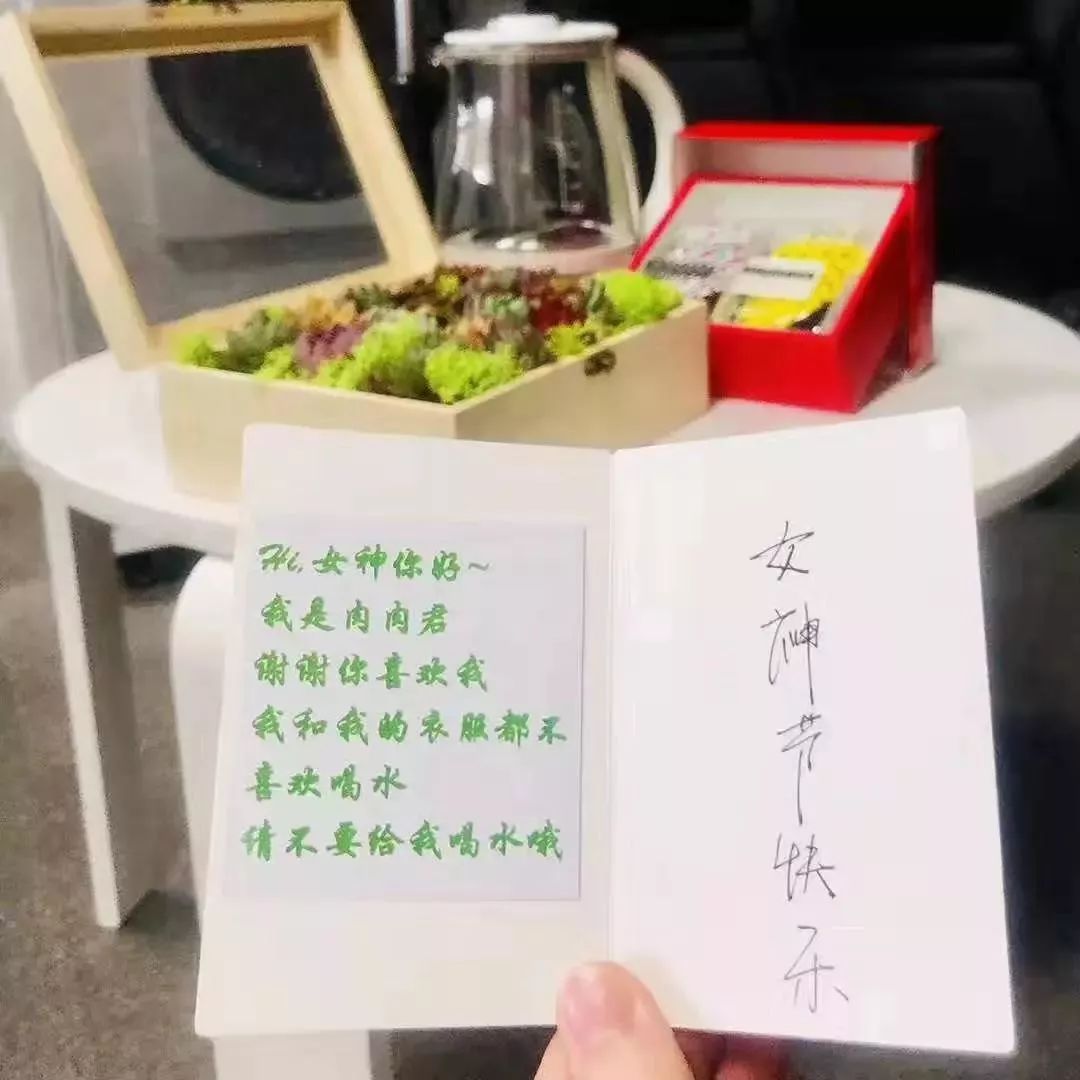 Hi,女神你好~
我是肉肉君
谢谢你喜欢我
我和我的衣服都不
喜欢喝水
请不要给我喝水哦
女神节快乐